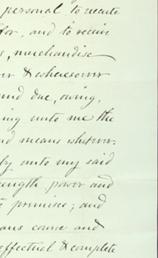 personal to execute
for, and to receive
s, merchandise
& whensoever
and due, owing,
ing unto me the
nd means whatsoe-
ly unto my said
rength, power and
promises; and
ous course and
effectual & complete